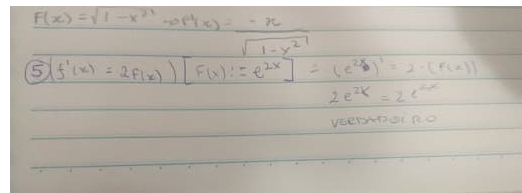 F(x) = √1-x² → F'(x) = -x / √1-x²
⑤ (f'(x) = 2F(x)) [F(x) := e^2x] = (e^2x)' = 2·(F(x))
2e^2x = 2e^2x
VERDADEIRO